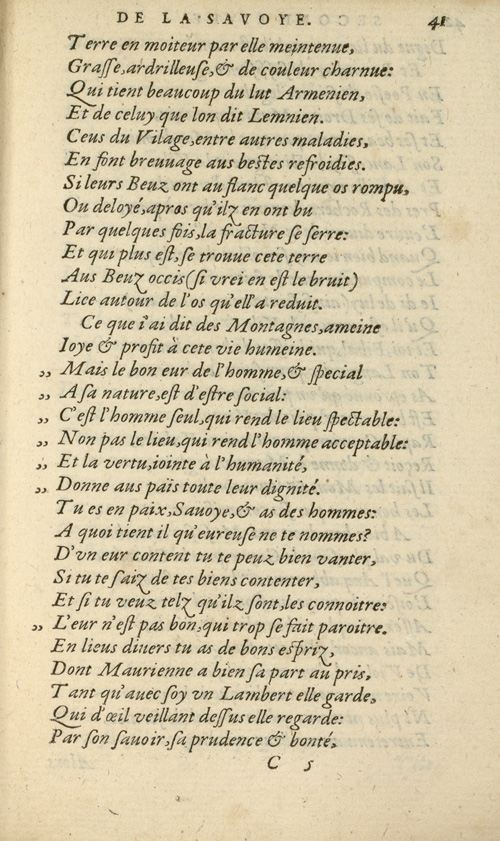 DE LA SAVOYE. 41
Terre en moiteur par elle meintenue,
Grasse, ardrilleuse, & de couleur charnue:
Qui tient beaucoup du lut Armenien,
Et de celuy que lon dit Lemnien.
Ceus du Vilage, entre autres maladies,
En font breuuage aus bestes refroidies.
Si leurs Beuz ont au flanc quelque os rompu,
Ou deloyé, apros qu'ilz en ont bu
Par quelques fois, la fracture se serre:
Et qui plus est, se trouue cete terre
Aus Beuz occis (si vrei en est le bruit)
Lice autour de l'os qu'ell' a reduit.
Ce que i'ai dit des Montagnes, ameine
Ioye & profit à cete vie humeine.
„ Mais le bon eur de l'homme, & special
„ A sa nature, est d'estre social:
„ C'est l'homme seul, qui rend le lieu spectable:
„ Non pas le lieu, qui rend l'homme acceptable:
„ Et la vertu, iointe à l'humanité,
„ Donne aus païs toute leur dignité.
Tu es en paix, Sauoye, & as des hommes:
A quoi tient il qu'eureuse ne te nommes?
D'vn eur content tu te peuz bien vanter,
Si tu te saiz de tes biens contenter,
Et si tu veuz telz qu'ilz sont, les connoitre:
„ L'eur n'est pas bon, qui trop se fait paroitre.
En lieus diuers tu as de bons espriz,
Dont Maurienne a bien sa part au pris,
Tant qu'auec soy vn Lambert elle garde,
Qui d'œil veillant dessus elle regarde:
Par son sauoir, sa prudence & bonté,
C 5